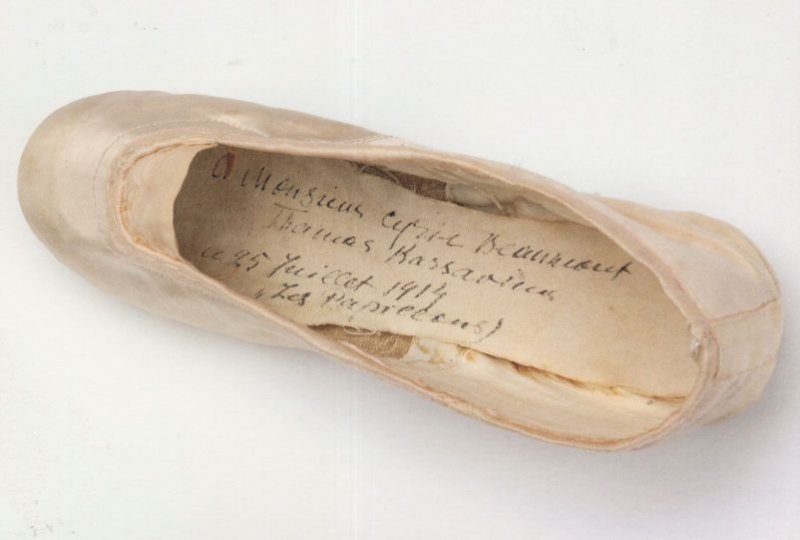 A Monsieur Cyril Beaumont
Thamas Karsavina
le 25 Juillet 1914
(Les Papillons)